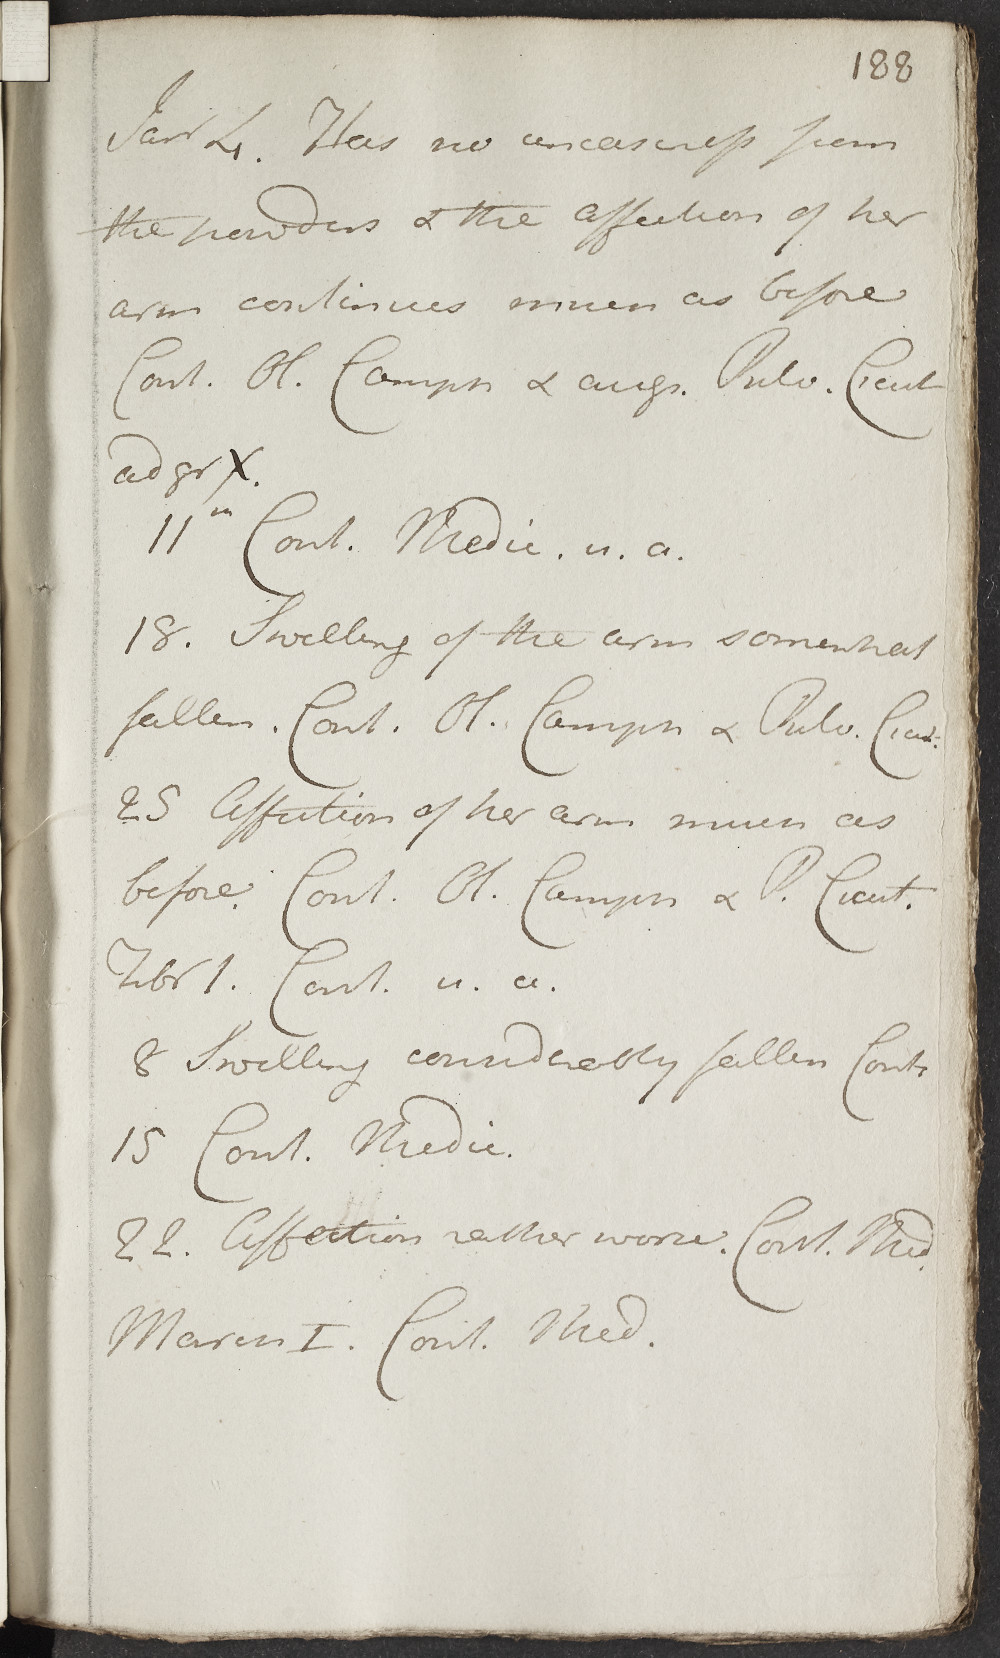 188
Janr 4. Has no uneasiness from
the powders & the affection of her
arm continues much as before
Cont. Ol. Camph & augr. Pulv. Cicut
ad gr X.
11th Cont. Medic. u. a.
18. Swelling of the arm somewhat
fallen. Cont. Ol. Camph & Pulv. Cicut.
25 Affection of her arm much as
before. Cont. Ol. Camph & P. Cicut.
Febr 1. Cont. u. a.
8 Swelling considerably fallen Contr
15 Cont. Medic.
22. Affection rather worse. Cont. Med.
March I. Cont. Med.